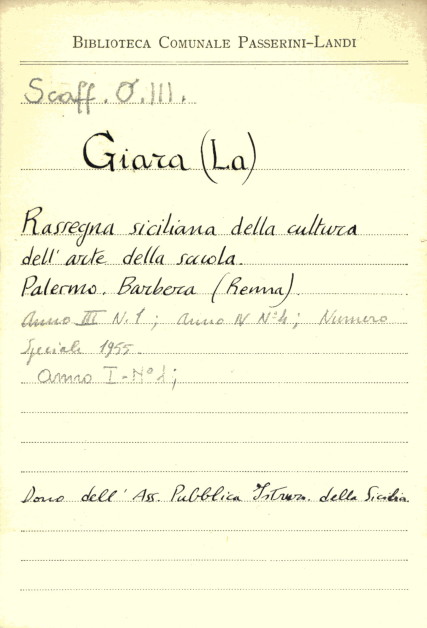 BIBLIOTECA COMUNALE PASSERINI-LANDI
Scaff. O.III.
Giara (La)
Rassegna siciliana della cultura
dell'arte della scuola.
Palermo. Barbera (Renna).
Anno III N.1; Anno IV N°4; Numero
Speciale 1955.
Anno I-N°1;
Dono dell' Ass. Pubblica Istruz. della Sicilia.